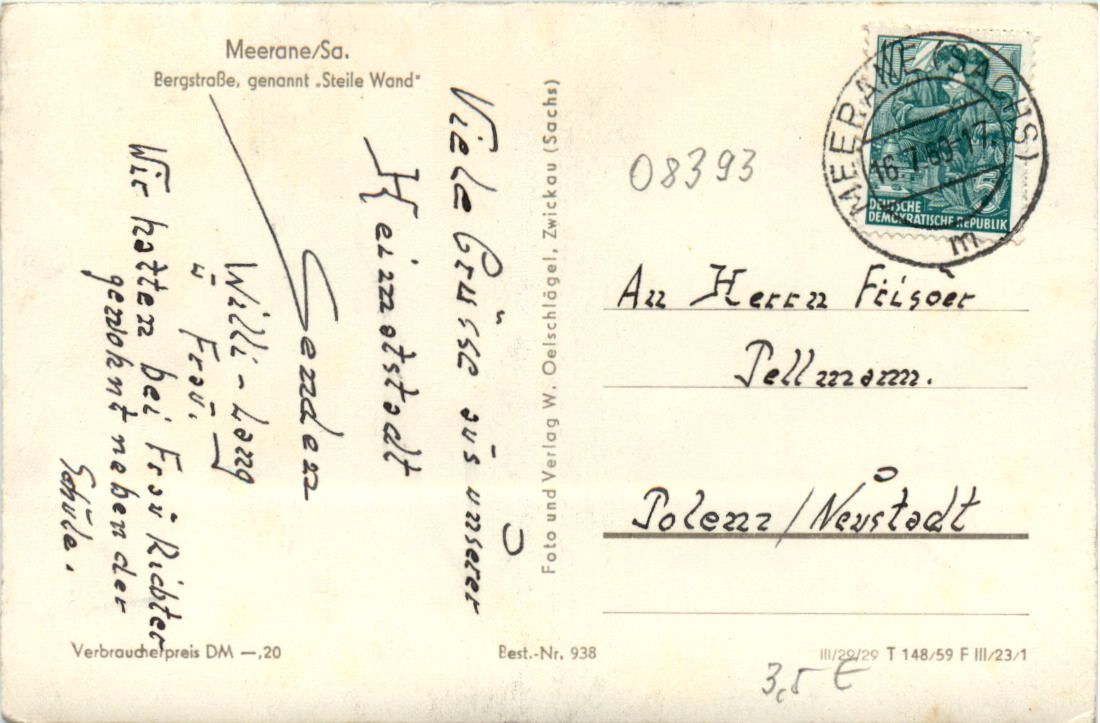 Meerane/Sa.
Bergstraße, genannt „Steile Wand"
Viele Grüsse aus unserer
Heimatstadt
Senden
Willi - Lang
ü Fraü.
Wir hatten bei Fraü Richter
gewohnt neben der
Schüle.
Verbraucherpreis DM —,20
Foto und Verlag W. Oelschlägel, Zwickau (Sachs)
Best.-Nr. 938
MEERANE (SACHS)
16.7.59-17
m
5
DEUTSCHE
DEMOKRATISCHE REPUBLIK
08393
An Herrn Frisöer
Pellmann.
Polenz/Neustadt
III/29/29 T 148/59 F III/23/1
3,5 €